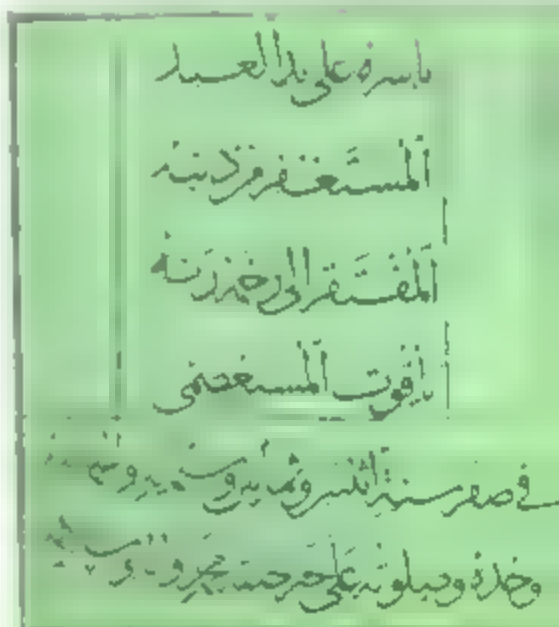 باسره على يد العبد
المستغفر من ذنبه
المفتقر الى رحمة ربه
ياقوت المستعصمى
فى صفر سنة اثنين وثمانين وستميه و
وحده وصلوته على خير